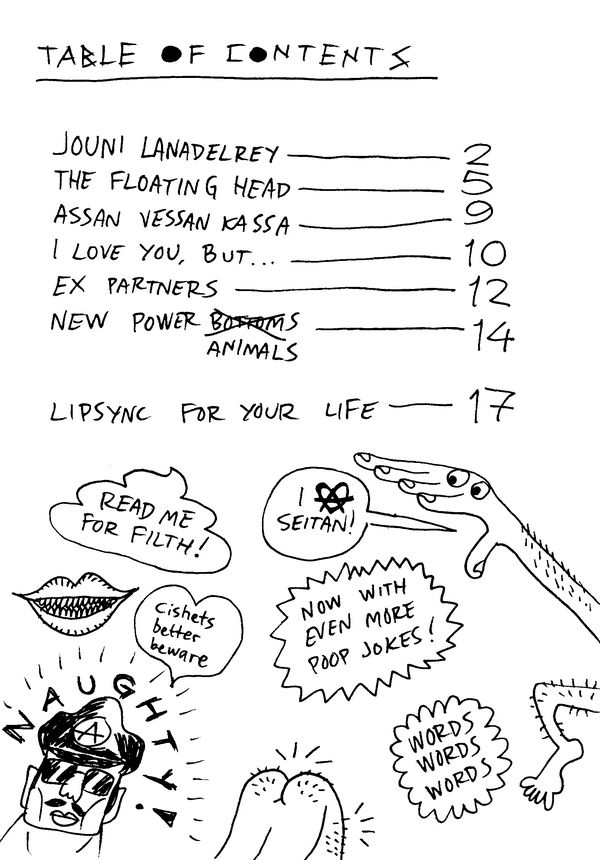 TABLE OF CONTENTS
JOUNI LANADELREY 2
THE FLOATING HEAD 5
ASSAN VESSAN KASSA 9
I LOVE YOU, BUT... 10
EX PARTNERS 12
NEW POWER BOTTOMS 14
ANIMALS
LIPSYNC FOR YOUR LIFE 17
READ ME
FOR FILTH!
I
SEITAN!
Cishets
better
beware
NOW WITH
EVEN MORE
POOP JOKES!
NAUGHTY!
A
WORDS
WORDS
WORDS